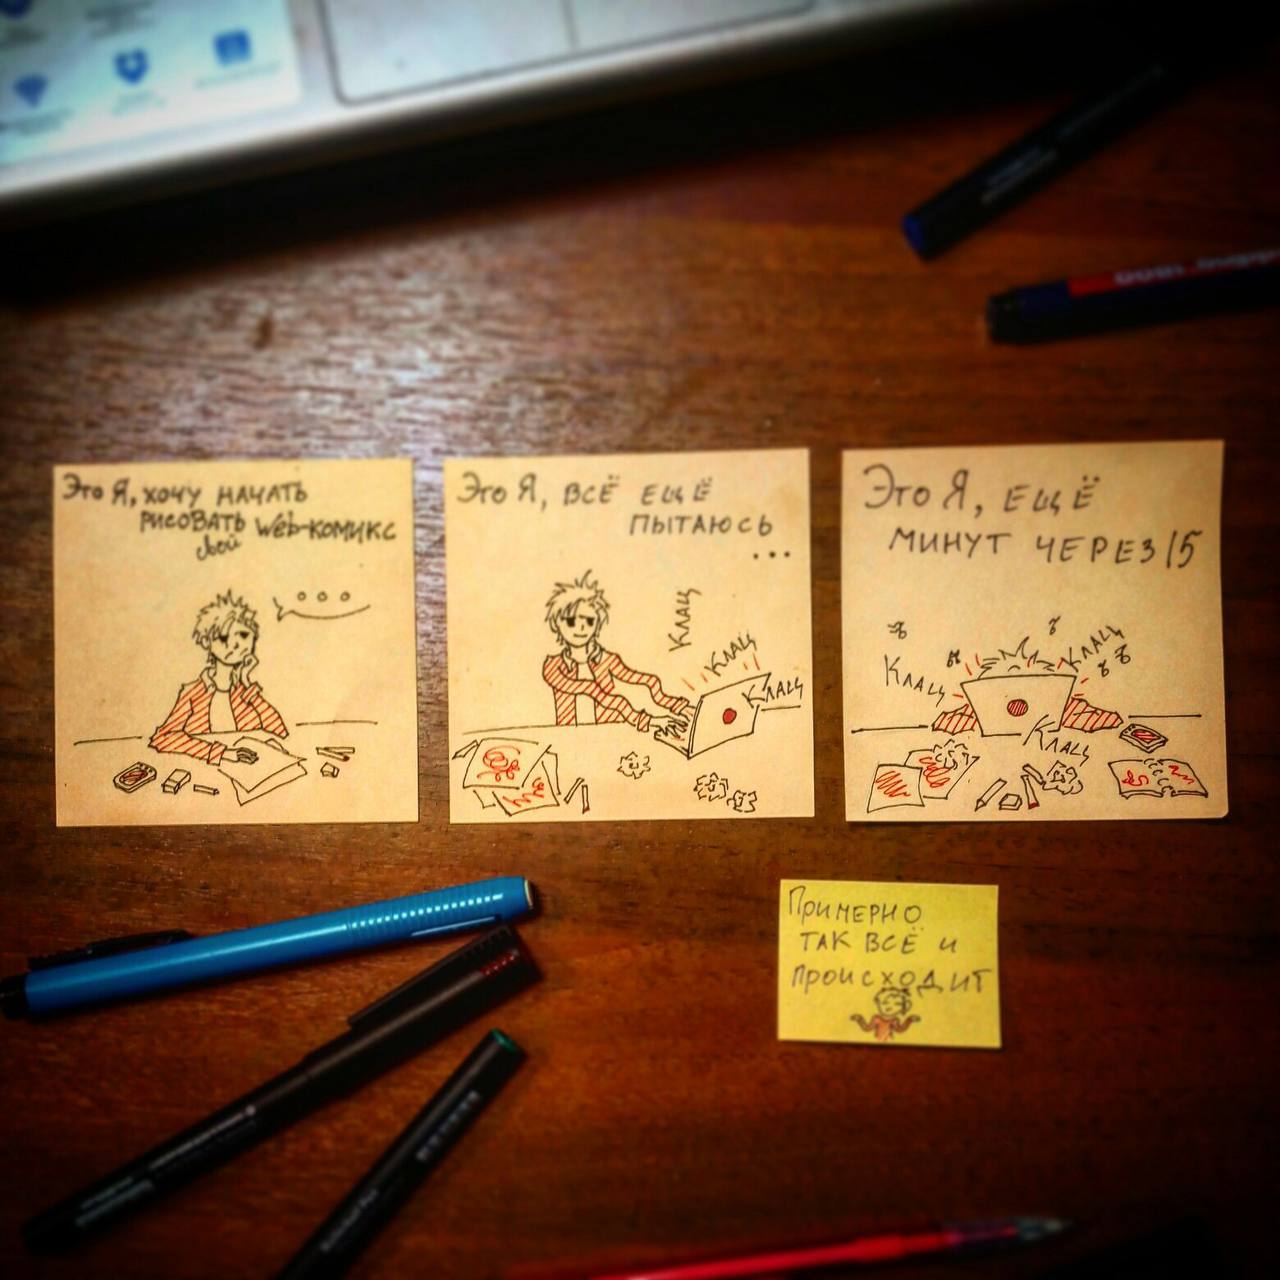 Это Я, хочу начать
рисовать web-комикс
свой
Это Я, всё ещё
пытаюсь
...
Клац
Клац
Клац
Это Я, ещё
минут через 15
Клац
Клац
Клац
Примерно
так всё и
происходит